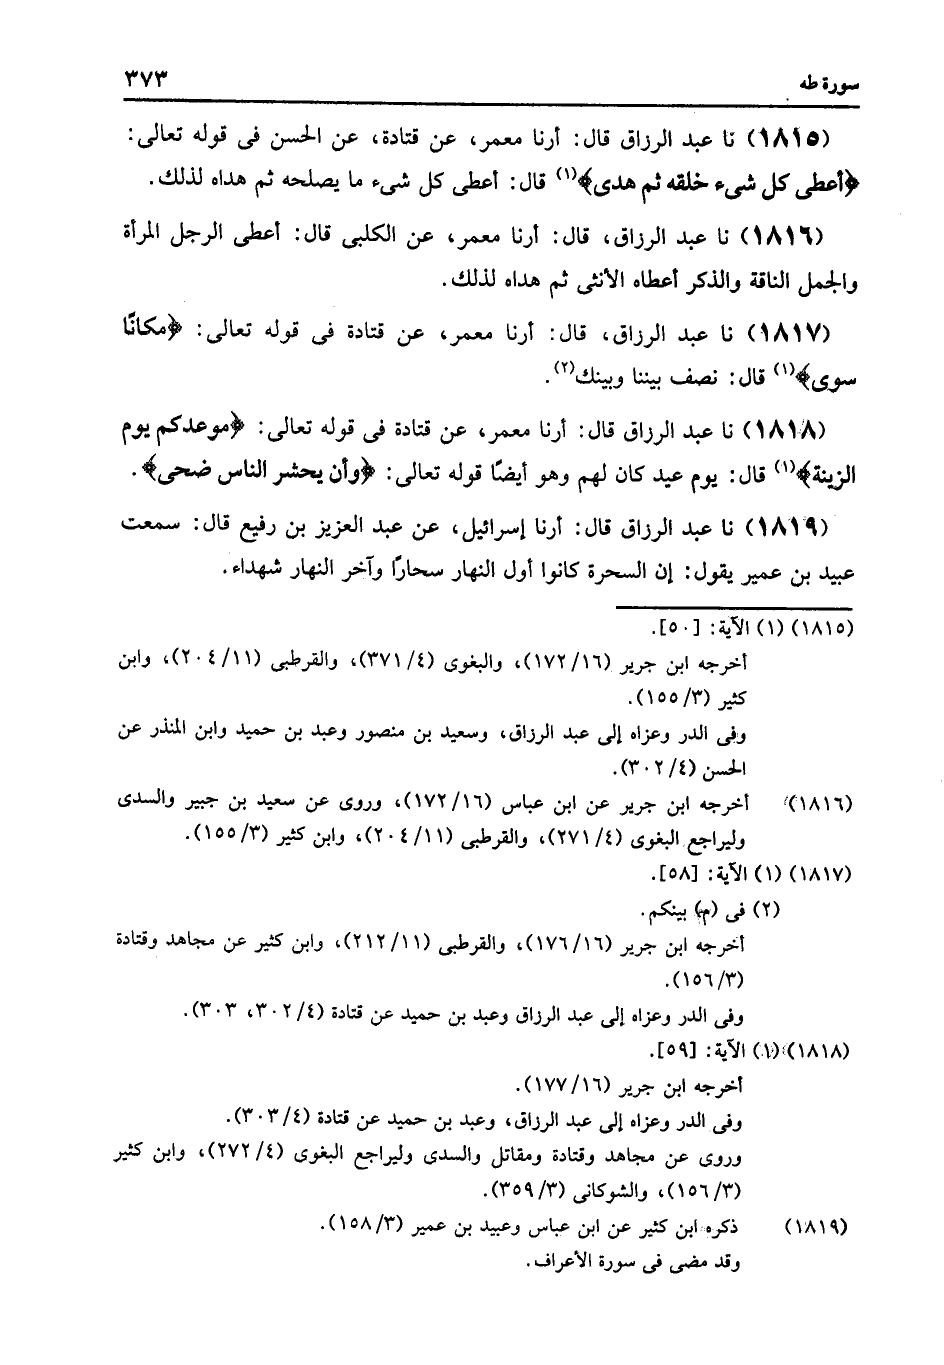 سورة طه ٣٧٣
(١٨١٥) نا عبد الرزاق قال: أرنا معمر، عن قتادة، عن الحسن فى قوله تعالى:
﴿أعطى كل شىء خلقه ثم هدى﴾(١) قال: أعطى كل شىء ما يصلحه ثم هداه لذلك.
(١٨١٦) نا عبد الرزاق، قال: أرنا معمر، عن الكلبى قال: أعطى الرجل المرأة
والجمل الناقة والذكر أعطاه الأنثى ثم هداه لذلك.
(١٨١٧) نا عبد الرزاق، قال: أرنا معمر، عن قتادة فى قوله تعالى: ﴿مكانًا
سوى﴾(١) قال: نصف بيننا وبينك(٢).
(١٨١٨) نا عبد الرزاق قال: أرنا معمر، عن قتادة فى قوله تعالى: ﴿موعدكم يوم
الزينة﴾(١) قال: يوم عيد كان لهم وهو أيضًا قوله تعالى: ﴿وأن يحشر الناس ضحى﴾.
(١٨١٩) نا عبد الرزاق قال: أرنا إسرائيل، عن عبد العزيز بن رفيع قال: سمعت
عبيد بن عمير يقول: إن السحرة كانوا أول النهار سحارًا وآخر النهار شهداء.
(١٨١٥) (١) الآية: [٥٠].
أخرجه ابن جرير (١٦/ ١٧٢)، والبغوى (٤/ ٣٧١)، والقرطبى (١١/ ٢٠٤)، وابن
كثير (٣/ ١٥٥).
وفى الدر وعزاه إلى عبد الرزاق، وسعيد بن منصور وعبد بن حميد وابن المنذر عن
الحسن (٤/ ٣٠٢).
(١٨١٦) أخرجه ابن جرير عن ابن عباس (١٦/ ١٧٢)، وروى عن سعيد بن جبير والسدى
وليراجع البغوى (٤/ ٢٧١)، والقرطبى (١١/ ٢٠٤)، وابن كثير (٣/ ١٥٥).
(١٨١٧) (١) الآية: [٥٨].
(٢) فى (م) بينكم.
أخرجه ابن جرير (١٦/ ١٧٦)، والقرطبى (١١/ ٢١٢)، وابن كثير عن مجاهد وقتادة
(٣/ ١٥٦).
وفى الدر وعزاه إلى عبد الرزاق وعبد بن حميد عن قتادة (٤/ ٣٠٢، ٣٠٣).
(١٨١٨) (١) الآية: [٥٩].
أخرجه ابن جرير (١٦/ ١٧٧).
وفى الدر وعزاه إلى عبد الرزاق، وعبد بن حميد عن قتادة (٤/ ٣٠٣).
وروى عن مجاهد وقتادة ومقاتل والسدى وليراجع البغوى (٤/ ٢٧٢)، وابن كثير
(٣/ ١٥٦)، والشوكانى (٣/ ٣٥٩).
(١٨١٩) ذكره ابن كثير عن ابن عباس وعبيد بن عمير (٣/ ١٥٨).
وقد مضى فى سورة الأعراف.